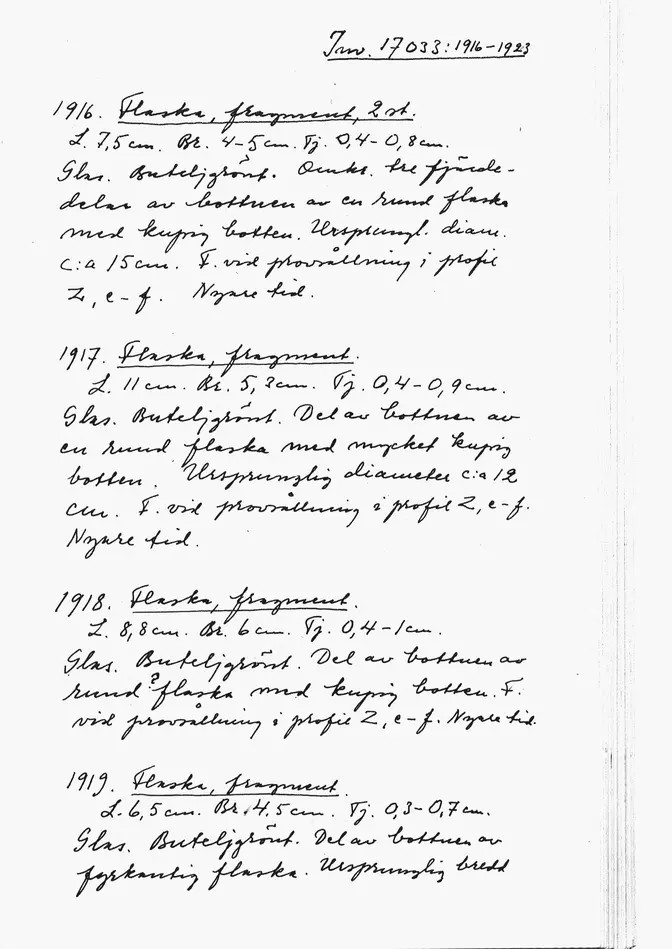 Inv. 17033:1916-1923
1916. Flaska, fragment, 2 st.
L. 7,5 cm. Br. 4-5 cm. Tj. 0,4-0,8 cm.
Glas. Buteljgrönt. Omkr. tre fjärde-
delar av bottnen av en rund flaska
med kupig botten. Ursprungl. diam.
c:a 15 cm. F. vid provsållning i profil
Z, e-f. Nyare tid.
1917. Flaska, fragment.
L. 11 cm. Br. 5,3 cm. Tj. 0,4-0,9 cm.
Glas. Buteljgrönt. Del av bottnen av
en rund flaska med mycket kupig
botten. Ursprunglig diameter c:a 12
cm. F. vid provsållning i profil Z, e-f.
Nyare tid.
1918. Flaska, fragment.
L. 8,8 cm. Br. 6 cm. Tj. 0,4-1 cm.
Glas. Buteljgrönt. Del av bottnen av
rund? flaska med kupig botten. F.
vid provsållning i profil Z, e-f. Nyare tid.
1919. Flaska, fragment.
L. 6,5 cm. Br. 4,5 cm. Tj. 0,3-0,7 cm.
Glas. Buteljgrönt. Del av bottnen av
fyrkantig flaska. Ursprunglig bredd